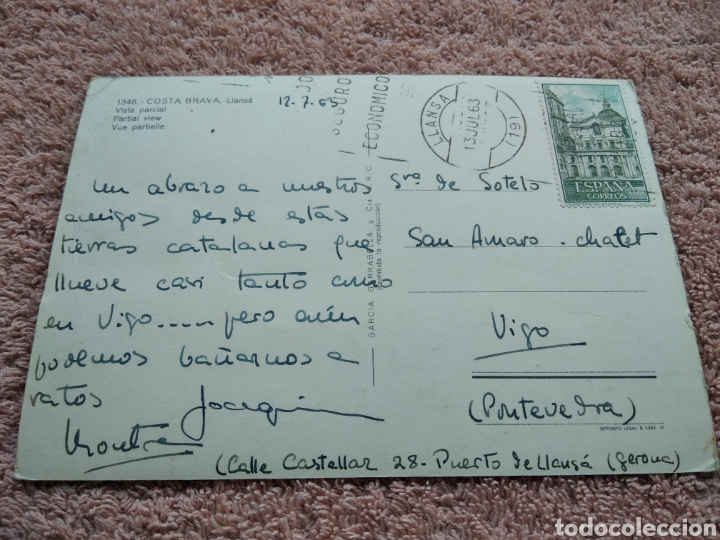 1346. - COSTA BRAVA. -Llansá
Vista parcial
Partial view
Vue partielle
12-7-63
ECONOMICO
LLANSA
13 JUL 63
(19)
ESPAÑA
CORREOS
un abrazo a nuestros
amigos desde estas
tierras catalanas que
llueve casi tanto como
en Vigo.....pero aún
podemos bañarnos a
ratos
Joaquin
GARCIA GARRABELLA y Cía R.C.
(Prohibida la reproducción)
Sra de Sotelo
San Amaro - chalet
Vigo
(Pontevedra)
DEPOSITO LEGAL B.
(Calle Castellar 28 - Puerto de Llansá (Gerona)
todocoleccion